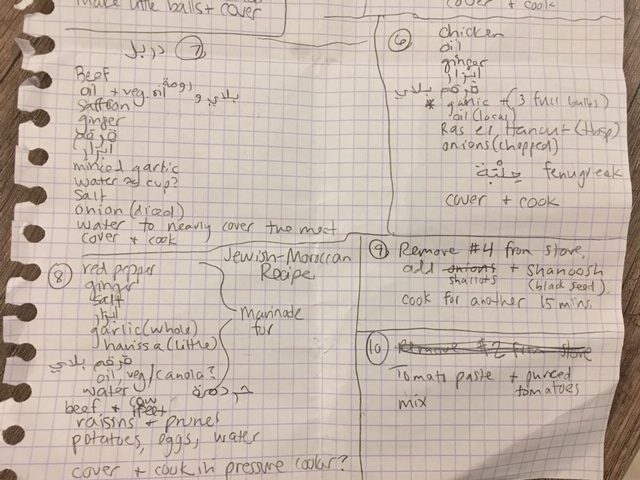 Make little balls + cover
cover + cook
7
Beef
oil + veg. oil رومة
saffron و بلدي
ginger
ابزار
minced garlic
water ≈ cup?
salt
onion (diced)
water to nearly cover the meat
cover + cook
6
chicken
oil
ginger
ابزار
بلدي
* garlic + (3 full bulbs)
oil (local)
Ras el Hanout (tbsp)
onions (chopped)
حلبة fenugreek
cover + cook
8
Jewish-Moroccan
Recipe
red pepper
ginger
salt
ابزار
garlic (whole)
harissa (little)
بلدي
oil, veg/canola?
water
marinade
for
beef, + cow
feet
raisins + prunes
potatoes, eggs, water
cover + cook in pressure cooker?
9 Remove #4 from stove,
add onions + shanoosh
shallots (black seed).
cook for another 15 mins.
10 Remove #2 from stove
Tomato paste + pureed
tomatoes
mix